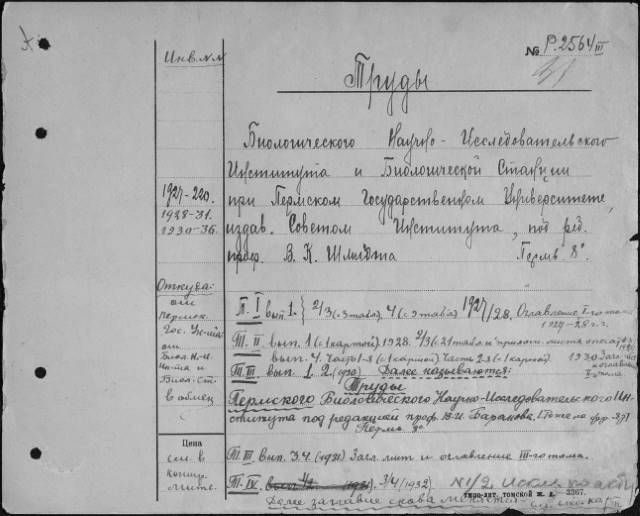 Инв.NN
№ Р.2564 III
31
Труды
Биологического Научно-Исследовательского
Института и Биологической Станции
при Пермском Государственном Университете,
издав. Советом Института, под ред.
проф. В. К. Шмидта Пермь 8°
1927-220.
1928-31.
1930-36.
Откуда:
от
Пермск.
Гос. Ун-та
от
Биол. Н-И.
Ин-та и
Биол. Ст.
в обмен
Цена
см. в
концр.
лите.
Т. I вып 1. } 2/3 (с 3 табл.) 4 (с 3 табл.) 1927/28. Оглавление I-го тома
1927-28 г.г.
Т. II вып. 1 (с 1 картой) 1928. 2/3 (с 21 табл. и
вып. 4. Часть 1-я (с 1 картой) Часть 2-я (с 1 картой) 1930
Т. III вып. 1. 2. (1930) Далее называются:
Труды
Пермского Биологического Научно-Исследовательского Ин-
ститута под редакцией проф. В. И. Баранова.
Пермь 8°
Т. III вып. 3.4. (1931) Загл. лит и оглавление III-го тома.
Т. IV. 3/4 (1932) N 1/2
Далее заглавие снова
типо-лит. томской ж. д. 2367.